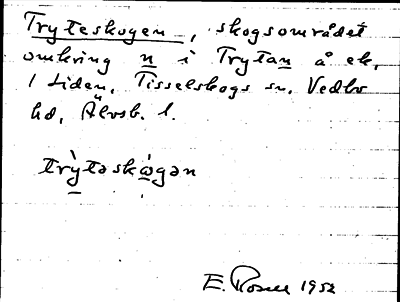 Tryteskogen, skogsområdet
omkring n i Trytan å ek.
1 Liden, Tisselskogs sn. Vedbo
hd, Älvsb. l.
trỳtəskɷ̀gən
E. Rosell 1952